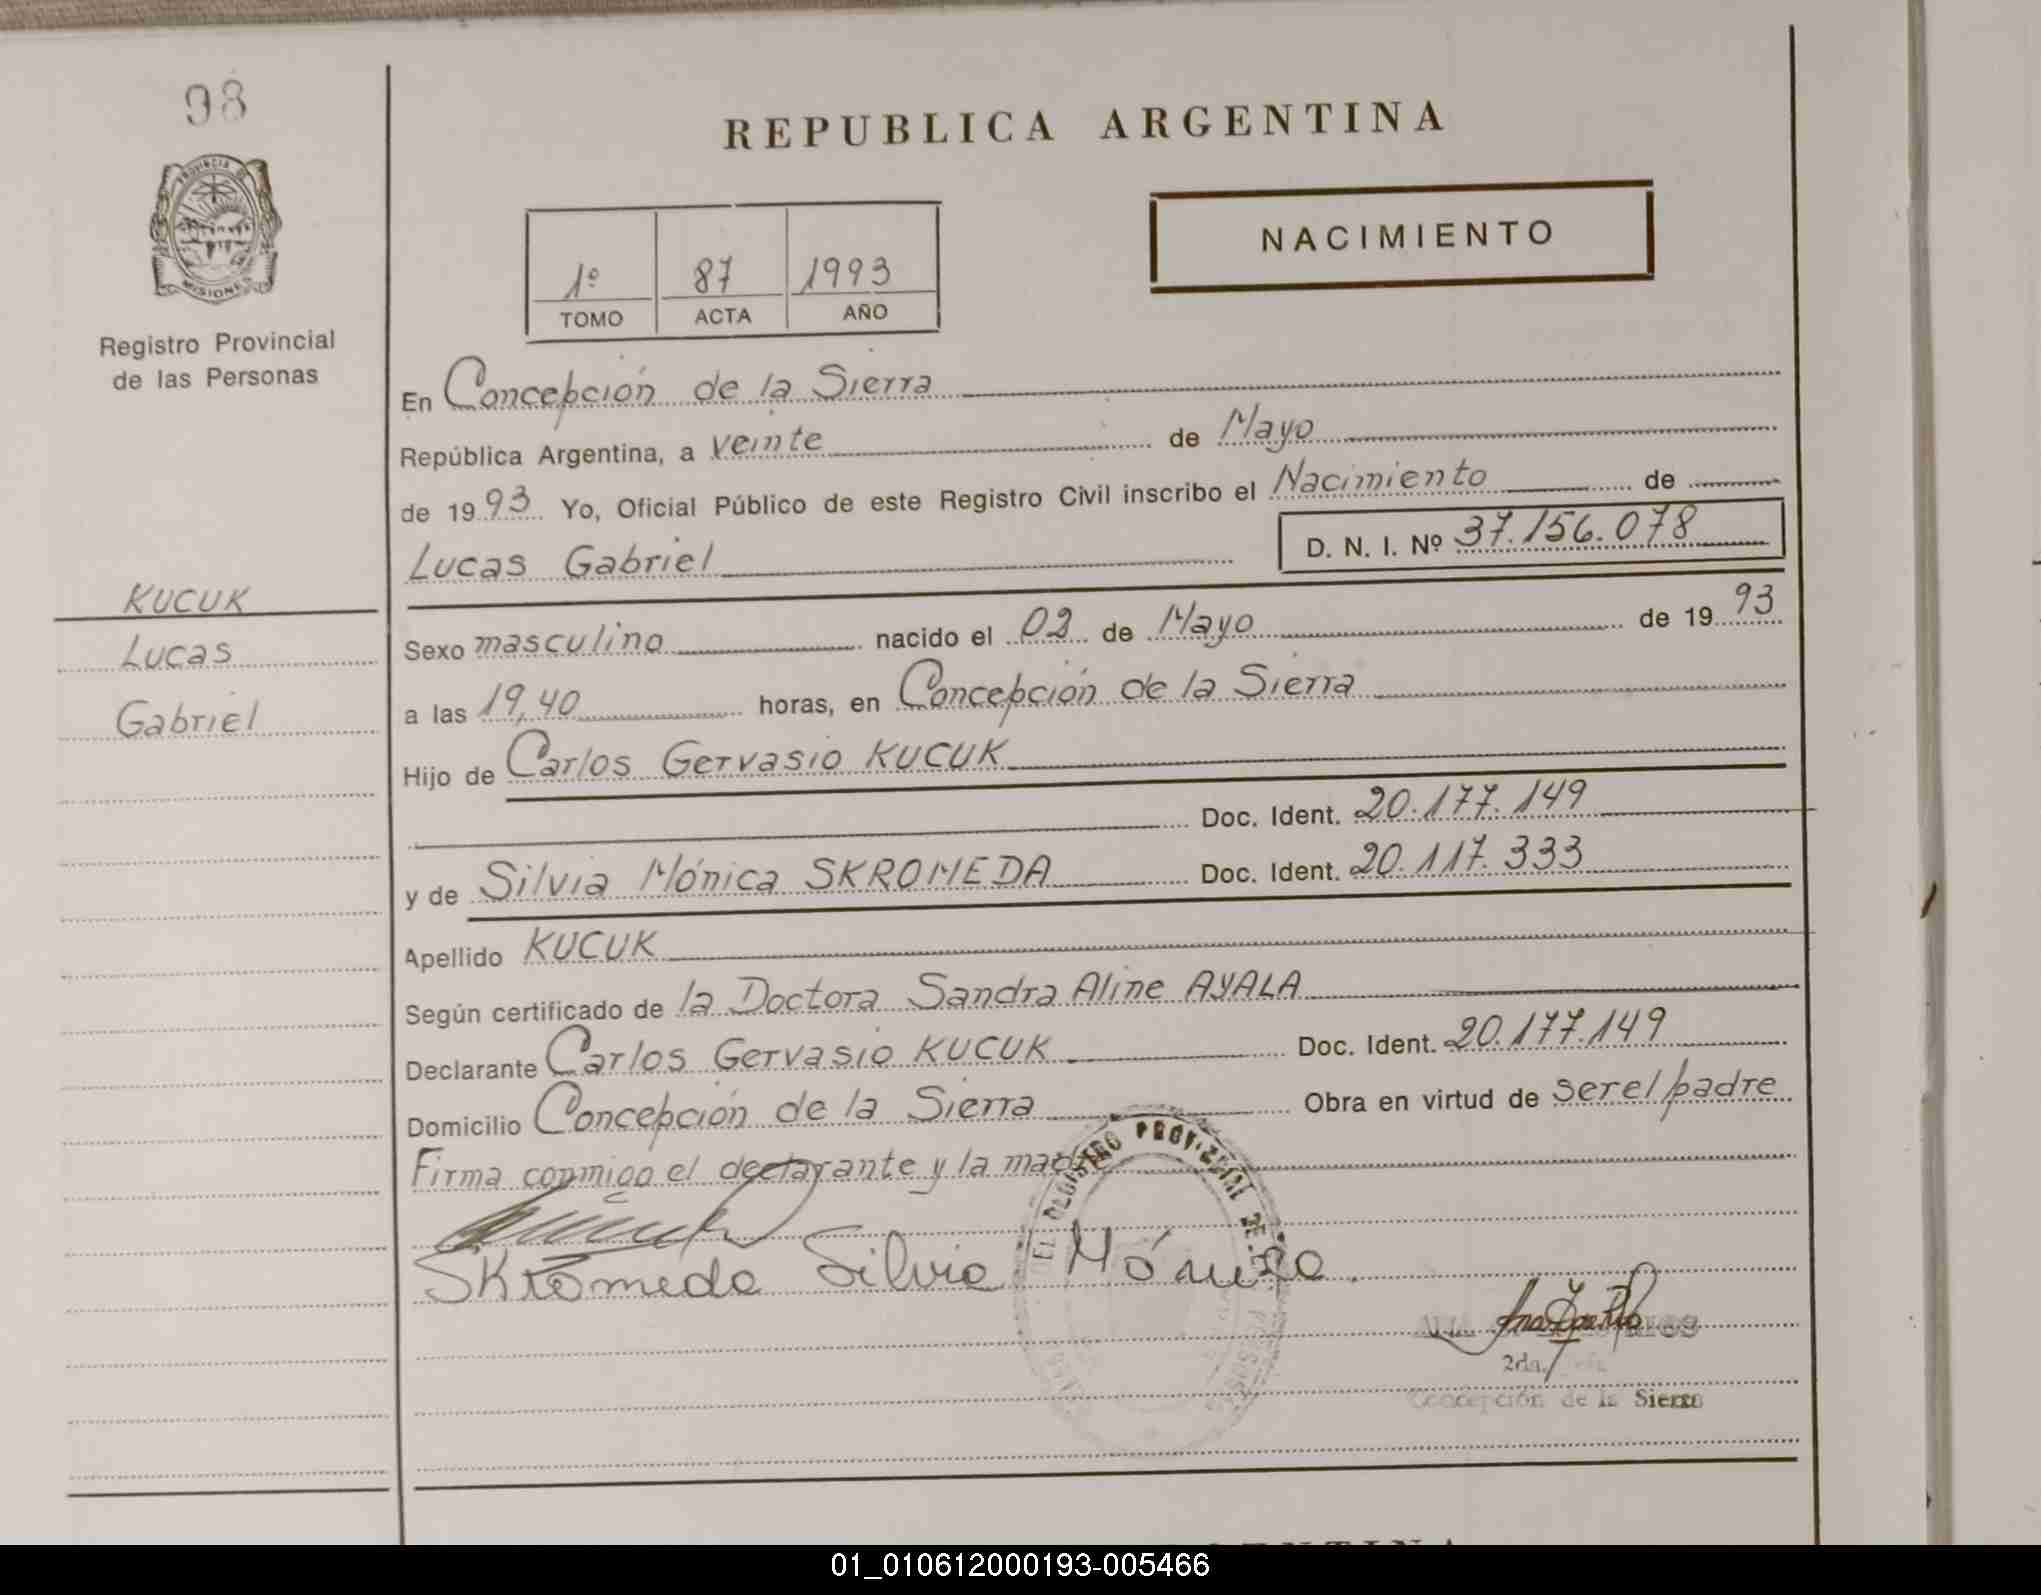 98
PROVINCIA DE
MISIONES
Registro Provincial
de las Personas
KUCUK
Lucas
Gabriel
REPUBLICA ARGENTINA
NACIMIENTO
1º 87 1993
TOMO ACTA AÑO
En Concepción de la Sierra
República Argentina, a veinte de Mayo
de 1993 Yo, Oficial Público de este Registro Civil inscribo el Nacimiento de
Lucas Gabriel D. N. I. Nº 37.156.078
Sexo masculino nacido el 02 de Mayo de 1993
a las 19,40 horas, en Concepción de la Sierra
Hijo de Carlos Gervasio KUCUK
Doc. Ident. 20.177.149
y de Silvia Mónica SKROMEDA Doc. Ident. 20.117.333
Apellido KUCUK
Según certificado de la Doctora Sandra Aline AYALA
Declarante Carlos Gervasio KUCUK Doc. Ident. 20.177.149
Domicilio Concepción de la Sierra Obra en virtud de ser el padre
Firma conmigo el declarante y la madre
Skromeda Silvia Mónica.
DEL REGISTRO PROVINCIAL DE
2da.
Concepción de la Sierra
01_010612000193-005466